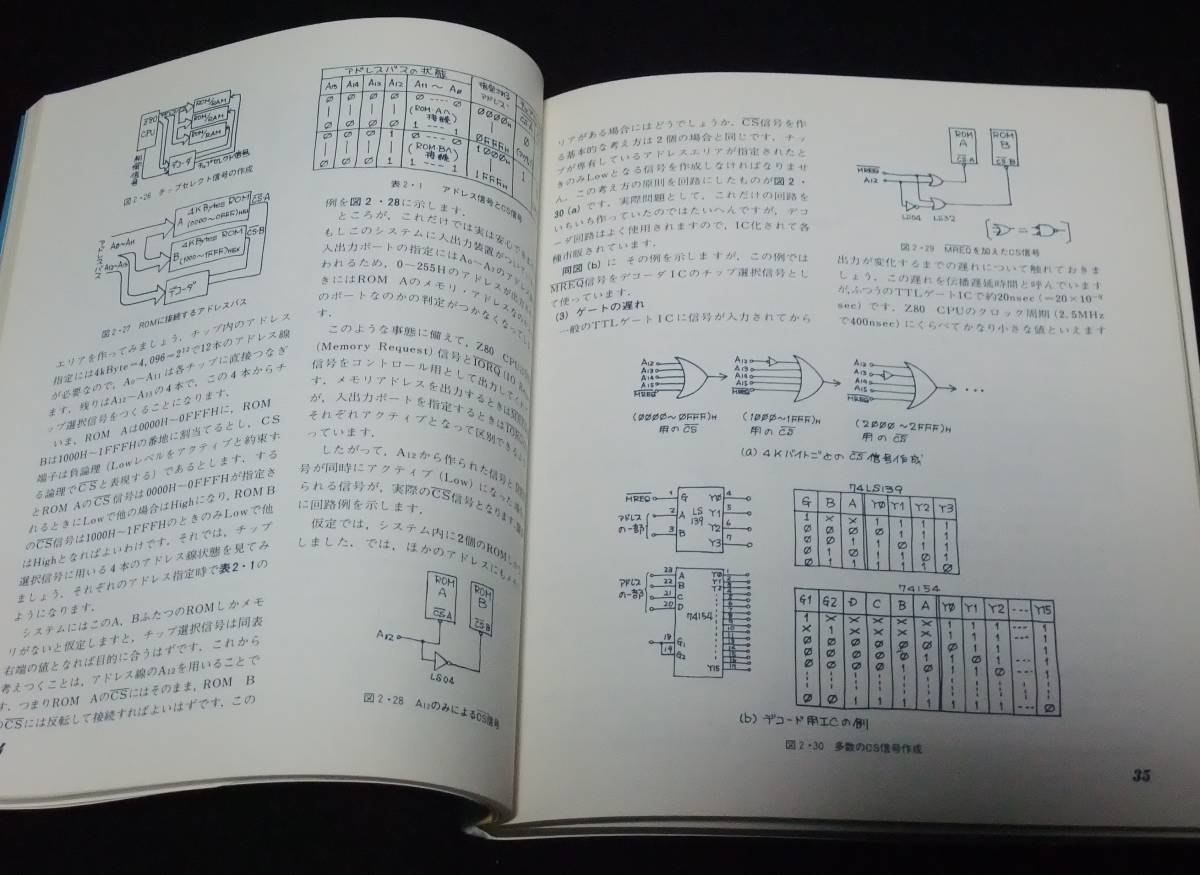 Z80
CPU
ROM/RAM
ROM/RAM
ROM/RAM
制御信号
デコーダ
チップセレクト信号
図2・26 チップセレクト信号の作成
アドレスバス
A0~A11
A12~A15
A
4KBytes ROM
(0000~0FFF)HEX
CS・A
B
4KBytes ROM
(1000~1FFF)HEX
CS・B
デコーダ
図2・27 ROMに接続するアドレスバス
エリアを作ってみましょう.チップ内のアドレス
指定には4kByte=4,096=2¹²で12本のアドレス線
が必要なので,A₀~A₁₁は各チップに直接つなぎ
ます.残りはA₁₂~A₁₅の4本で,この4本からチ
ップ選択信号をつくることになります.
いま,ROM Aは0000H~0FFFHに,ROM
Bは1000H~1FFFHの番地に割当てるとし,CS
端子は負論理(Lowレベルをアクティブと約束す
る論理でC̅S̅と表現する)であるとします.する
とROM AのC̅S̅信号は0000H~0FFFHが指定さ
れるときにLowで他の場合はHighになり,ROM B
のC̅S̅信号は1000H~1FFFHのときのみLowで他
はHighとなればよいわけです.それでは,チップ
選択信号に用いる4本のアドレス線状態を見てみ
ましょう.それぞれのアドレス指定時で表2・1の
ようになります.
システムにはこのA,BふたつのROMしかメモ
リがないと仮定しますと,チップ選択信号は同表
右端の値となれば目的に合うはずです.これから
考えつくことは,アドレス線のA₁₂を用いることで
す.つまりROM AのC̅S̅にはそのまま,ROM B
のC̅S̅には反転して接続すればよいはずです.この
アドレスバスの状態
A15 A14 A13 A12 A11 ~ A0
(ROM・Aへ接続)
(ROM・Bへ接続)
0000H
0FFFH
1000H
1FFFH
表2・1 アドレス信号とCS信号
例を図2・28に示します.
ところが,これだけでは実は安心で
もしこのシステムに入出力装置がつ
入出力ポートの指定にはA₀~A₇のアドレ
われるため,0~255Hのアドレスが出力
きにはROM Aのメモリ・アドレスなのか
のポートなのかの判定がつかなくなって
このような事態に備えて,Z80 CPUは
(Memory Request)信号とI̅O̅R̅Q̅(IO Re
信号をコントロール用として出力して
す.メモリアドレスを出力するときは
が,入出力ポートを指定するときは
それぞれアクティブとなって区別できるよ
っています.
したがって,A₁₂から作られた信号と
号が同時にアクティブ(Low)になった場
られる信号が,実際のC̅S̅信号となります.
に回路例を示します.
仮定では,システム内に2個のROM
しました.では,ほかのアドレスにもメモ
ROM
A
C̅S̅・A
ROM
B
C̅S̅・B
A12
LS04
図2・28 A₁₂のみによるC̅S̅信号
リアがある場合にはどうでしょうか.C̅S̅信号を作
る基本的な考え方は2個の場合と同じです.チッ
プが専有しているアドレスエリアが指定されたと
きのみLowとなる信号を作成しなければなりませ
ん.この考え方の原則を回路にしたものが図2・
30(a)です.実際問題として,これだけの回路を
いちいち作っていたのではたいへんですが,デコ
ーダ回路はよく使用されますので,IC化されて各
種市販されています.
同図(b)に その例を示しますが,この例では
M̅R̅E̅Q̅信号をデコーダICのチップ選択信号とし
て使っています.
(3) ゲートの遅れ
一般のTTLゲートICに信号が入力されてから
ROM
A
C̅S̅・A
ROM
B
C̅S̅・B
M̅R̅E̅Q̅
A12
LS04 LS32
図2・29 M̅R̅E̅Q̅を加えたCS信号
出力が変化するまでの遅れについて触れておきま
しょう.この遅れを伝播遅延時間と呼んでいます
が,ふつうのTTLゲートICで約20nsec(=20×10⁻⁹
sec)です.Z80 CPUのクロック周期(2.5MHz
で400nsec)にくらべてかなり小さな値といえます
A12
A13
A14
A15
M̅R̅E̅Q̅
(0000~0FFF)H
用のC̅S̅
A12
A13
A14
A15
M̅R̅E̅Q̅
(1000~1FFF)H
用のC̅S̅
A12
A13
A14
A15
M̅R̅E̅Q̅
(2000~2FFF)H
用のC̅S̅
・・・
(a) 4KバイトごとのC̅S̅信号作成
M̅R̅E̅Q̅ 1 G Y0 4
アドレスの一部
2 A Y1 5
3 B Y2 6
Y3 7
LS
139
74LS139
G B A Y0 Y1 Y2 Y3
1 × × 1 1 1 1
0 0 0 0 1 1 1
0 0 1 1 0 1 1
0 1 0 1 1 0 1
0 1 1 1 1 1 0
アドレスの一部
23 A
22 B
21 C
20 D
74154
18 G1
19 G2
Y0 1
Y1 2
Y2 3
Y15 17
74154
G1 G2 D C B A Y0 Y1 Y2 --- Y15
1 × × × × × 1 1 1 --- 1
× 1 × × × × 1 1 1 --- 1
0 0 0 0 0 0 0 1 1 --- 1
0 0 0 0 0 1 1 0 1 --- 1
0 0 0 0 1 0 1 1 0 --- 1
0 0 1 1 1 1 1 1 1 --- 0
(b) デコード用ICの例
図2・30 多数のCS信号作成
35